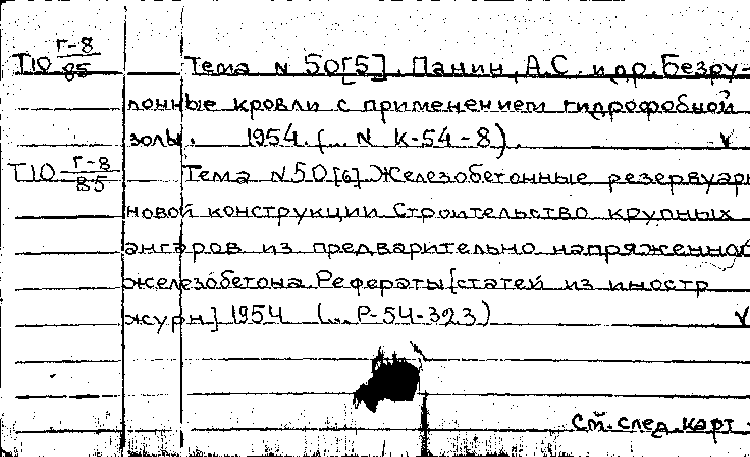 Т10 Г-8/85 Тема N 50[5]. Панин, А.С. и др. Безру-
лонные кровли с применением гидрофобной
золы. 1954. (... N К-54-8). v
Т10 Г-8/85 Тема N 50[6]. Железобетонные резервуары
новой конструкции. Строительство крупных
ангаров из предварительно напряженного
железобетона. Рефераты [статей из иностр
журн.] 1954 (... Р-54-323) v
См. след. карт.